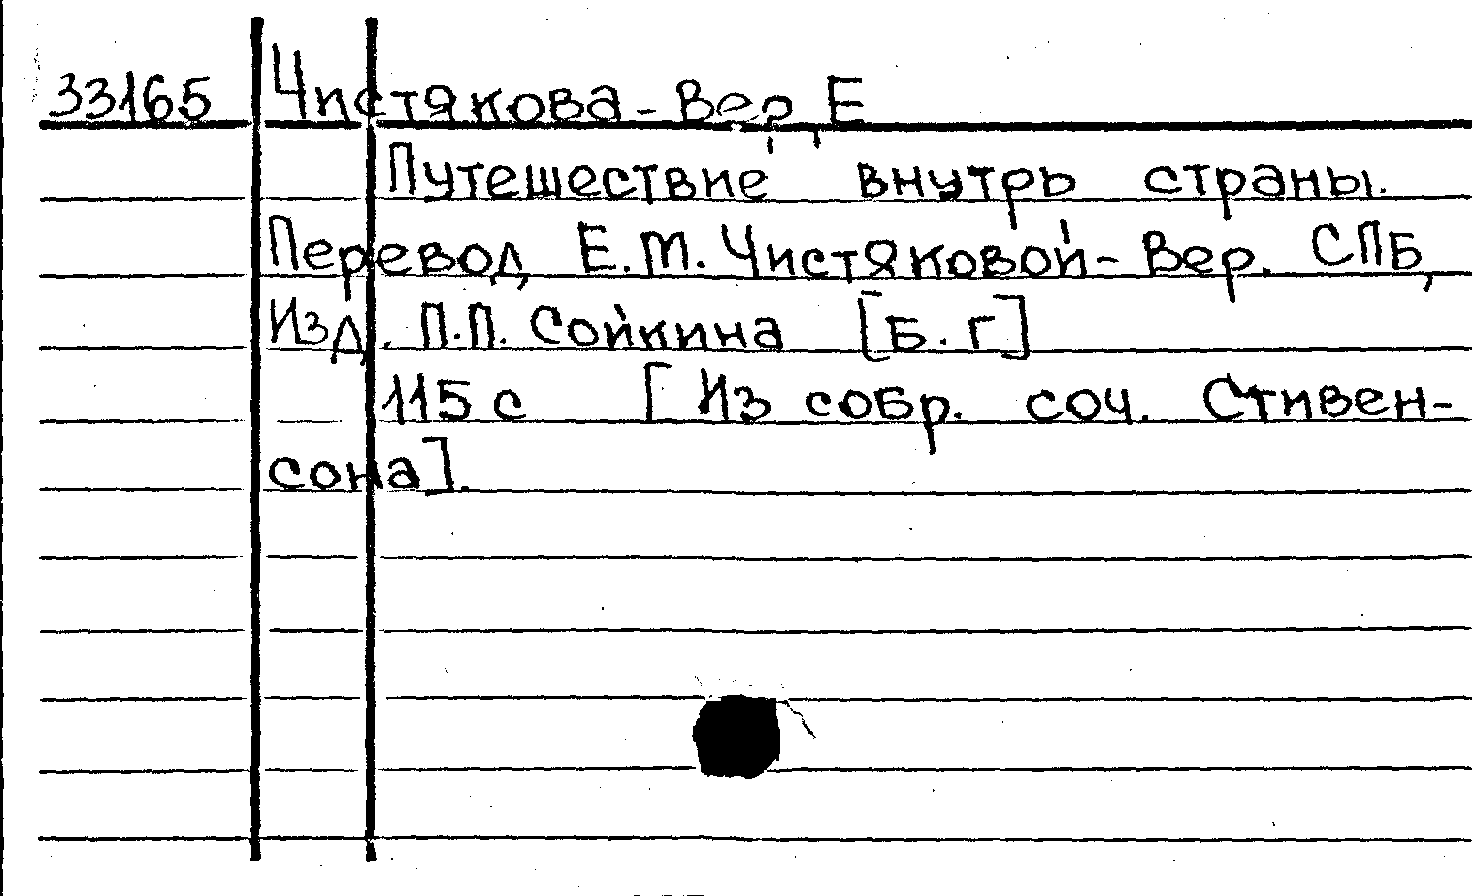 33165 Чистякова-Вер, Е
Путешествие внутрь страны.
Перевод Е.М. Чистяковой-Вер. СПБ,
Изд. П.П. Сойкина [Б.г]
115 с [Из собр. соч. Стивен-
сона].